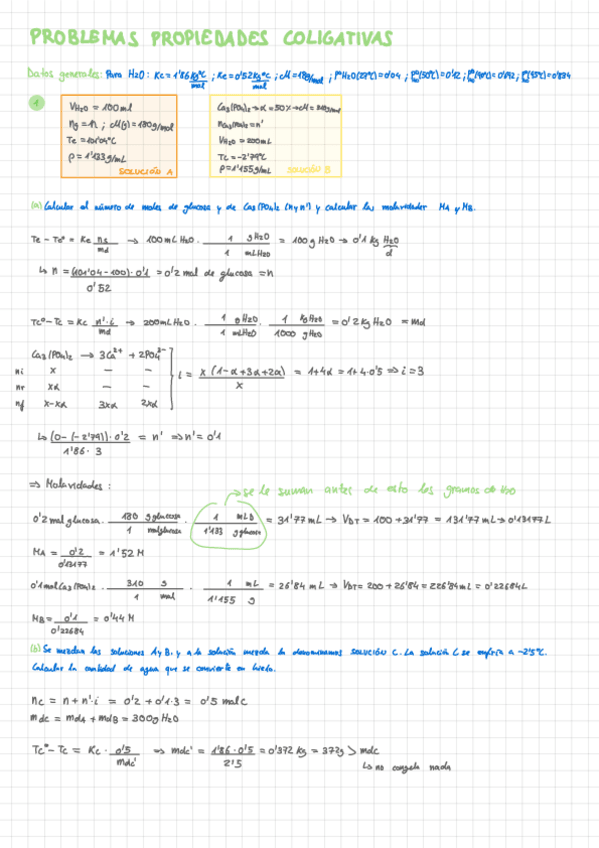 PROBLEMAS PROPIEDADES COLIGATIVAS
Datos generales: Para H2O: Kc = 1'86 Kg·ºC/mol ; Ke = 0'52 Kg·ºC/mol ; M = 18g/mol ;
1
VH2O = 100 ml
ng = n ; M(g) = 180 g/mol
Te = 101'04ºC
ρ = 1'133 g/mL
SOLUCIÓN A
Ca3(PO4)2 → α = 50% → M = 310g/mol
nCa3(PO4)2 = n'
VH2O = 200mL
Tc = -2'79ºC
ρ = 1'155 g/mL
SOLUCIÓN B
(a) Calcular el número de moles de glucosa y de Ca3(PO4)2 (n y n') y calcular las molaridades MA y MB.
Te - Teº = Ke ns/md → 100 mL H2O · 1 g H2O / 1 mL H2O = 100 g H2O → 0'1 kg H2O
d
↳ n = (101'04 - 100) · 0'1 / 0'52 = 0'2 mol de glucosa = n
Tcº - Tc = Kc n'·i / md → 200 mL H2O · 1 g H2O / 1 mL H2O · 1 kg H2O / 1000 g H2O = 0'2 kg H2O = md
Ca3(PO4)2 → 3Ca2+ + 2PO4 3-
ni x - -
nr xα - -
nf x-xα 3xα 2xα
i = x (1-α+3α+2α) / x = 1+4α = 1+4·0'5 ⇒ i = 3
↳ (0-(-2'79))·0'2 / 1'86 · 3 = n' ⇒ n' = 0'1
⇒ Molaridades :
→ se le suman antes de esto los gramos de H2O
0'2 mol glucosa · 180 g glucosa / 1 mol glucosa · 1 mL D / 1'133 g glucosa = 31'77 mL → VDT = 100 + 31'77 = 131'77 mL → 0'13177 L
MA = 0'2 / 0'13177 = 1'52 M
0'1 mol Ca3(PO4)2 · 310 g / 1 mol · 1 mL / 1'155 g = 26'84 mL → VDT = 200 + 26'84 = 226'84 mL = 0'22684 L
MB = 0'1 / 0'22684 = 0'44 M
(b) Se mezclan las soluciones A y B, y a la solución mezcla la denominamos SOLUCIÓN C. La solución C se enfría a -2'5ºC.
Calcular la cantidad de agua que se convierte en hielo.
nc = n + n'·i = 0'2 + 0'1·3 = 0'5 mol C
mdc = mdA + mdB = 300g H2O
Tcº - Tc = Kc · 0'5 / mdc' ⇒ mdc' = 1'86 · 0'5 / 2'5 = 0'372 Kg = 372g > mdc
↳ no congela nada